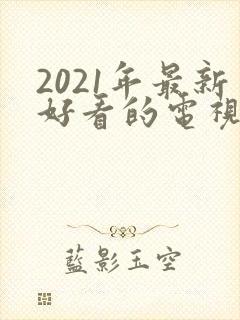 2021年最新
好看的電視
藍影玉空